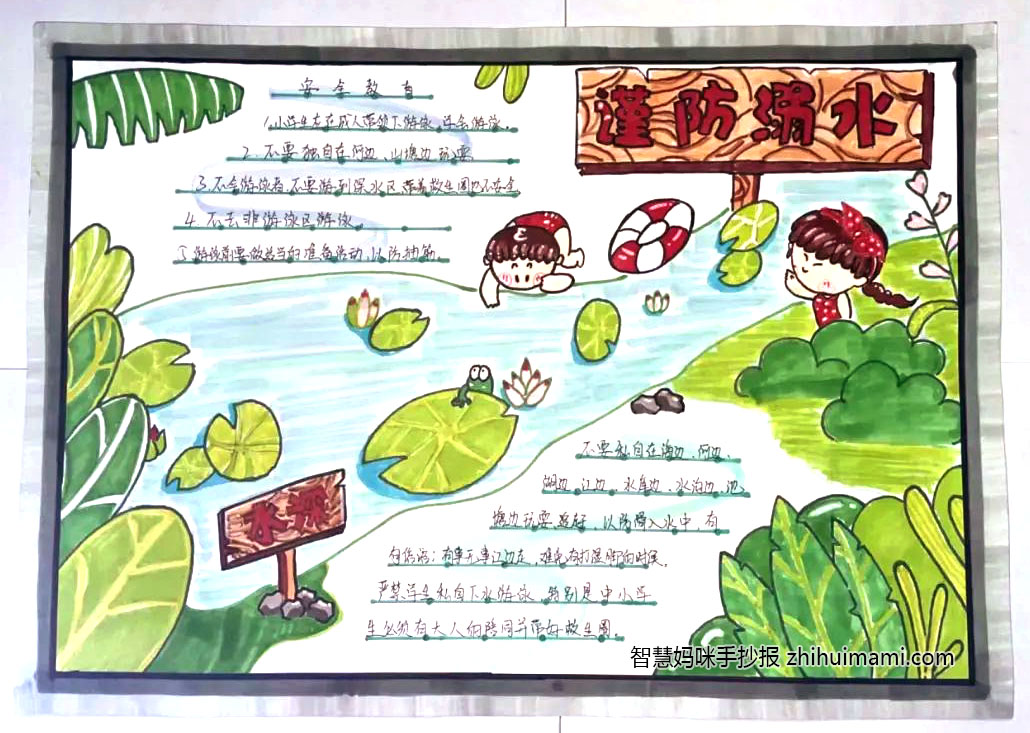 谨防溺水
安全教育
1.小学生应在成人带领下游泳,学会游泳.
2.不要独自在河边、山塘边玩耍
3.不会游泳者,不要游到深水区,带着救生圈也不安全
4.不去非游泳区游泳.
游泳前要做适当的准备活动,以防抽筋.
水深
不要私自在海边、河边、
湖边、江边、水库边、水沟边、池
塘边玩耍、追赶,以防滑入水中,有
句俗话:有事无事江边走,难免有打湿脚的时候.
严禁学生私自下水游泳,特别是中小学
生必须有大人的陪同并带好救生圈.
智慧妈咪手抄报 zhihuimami.com